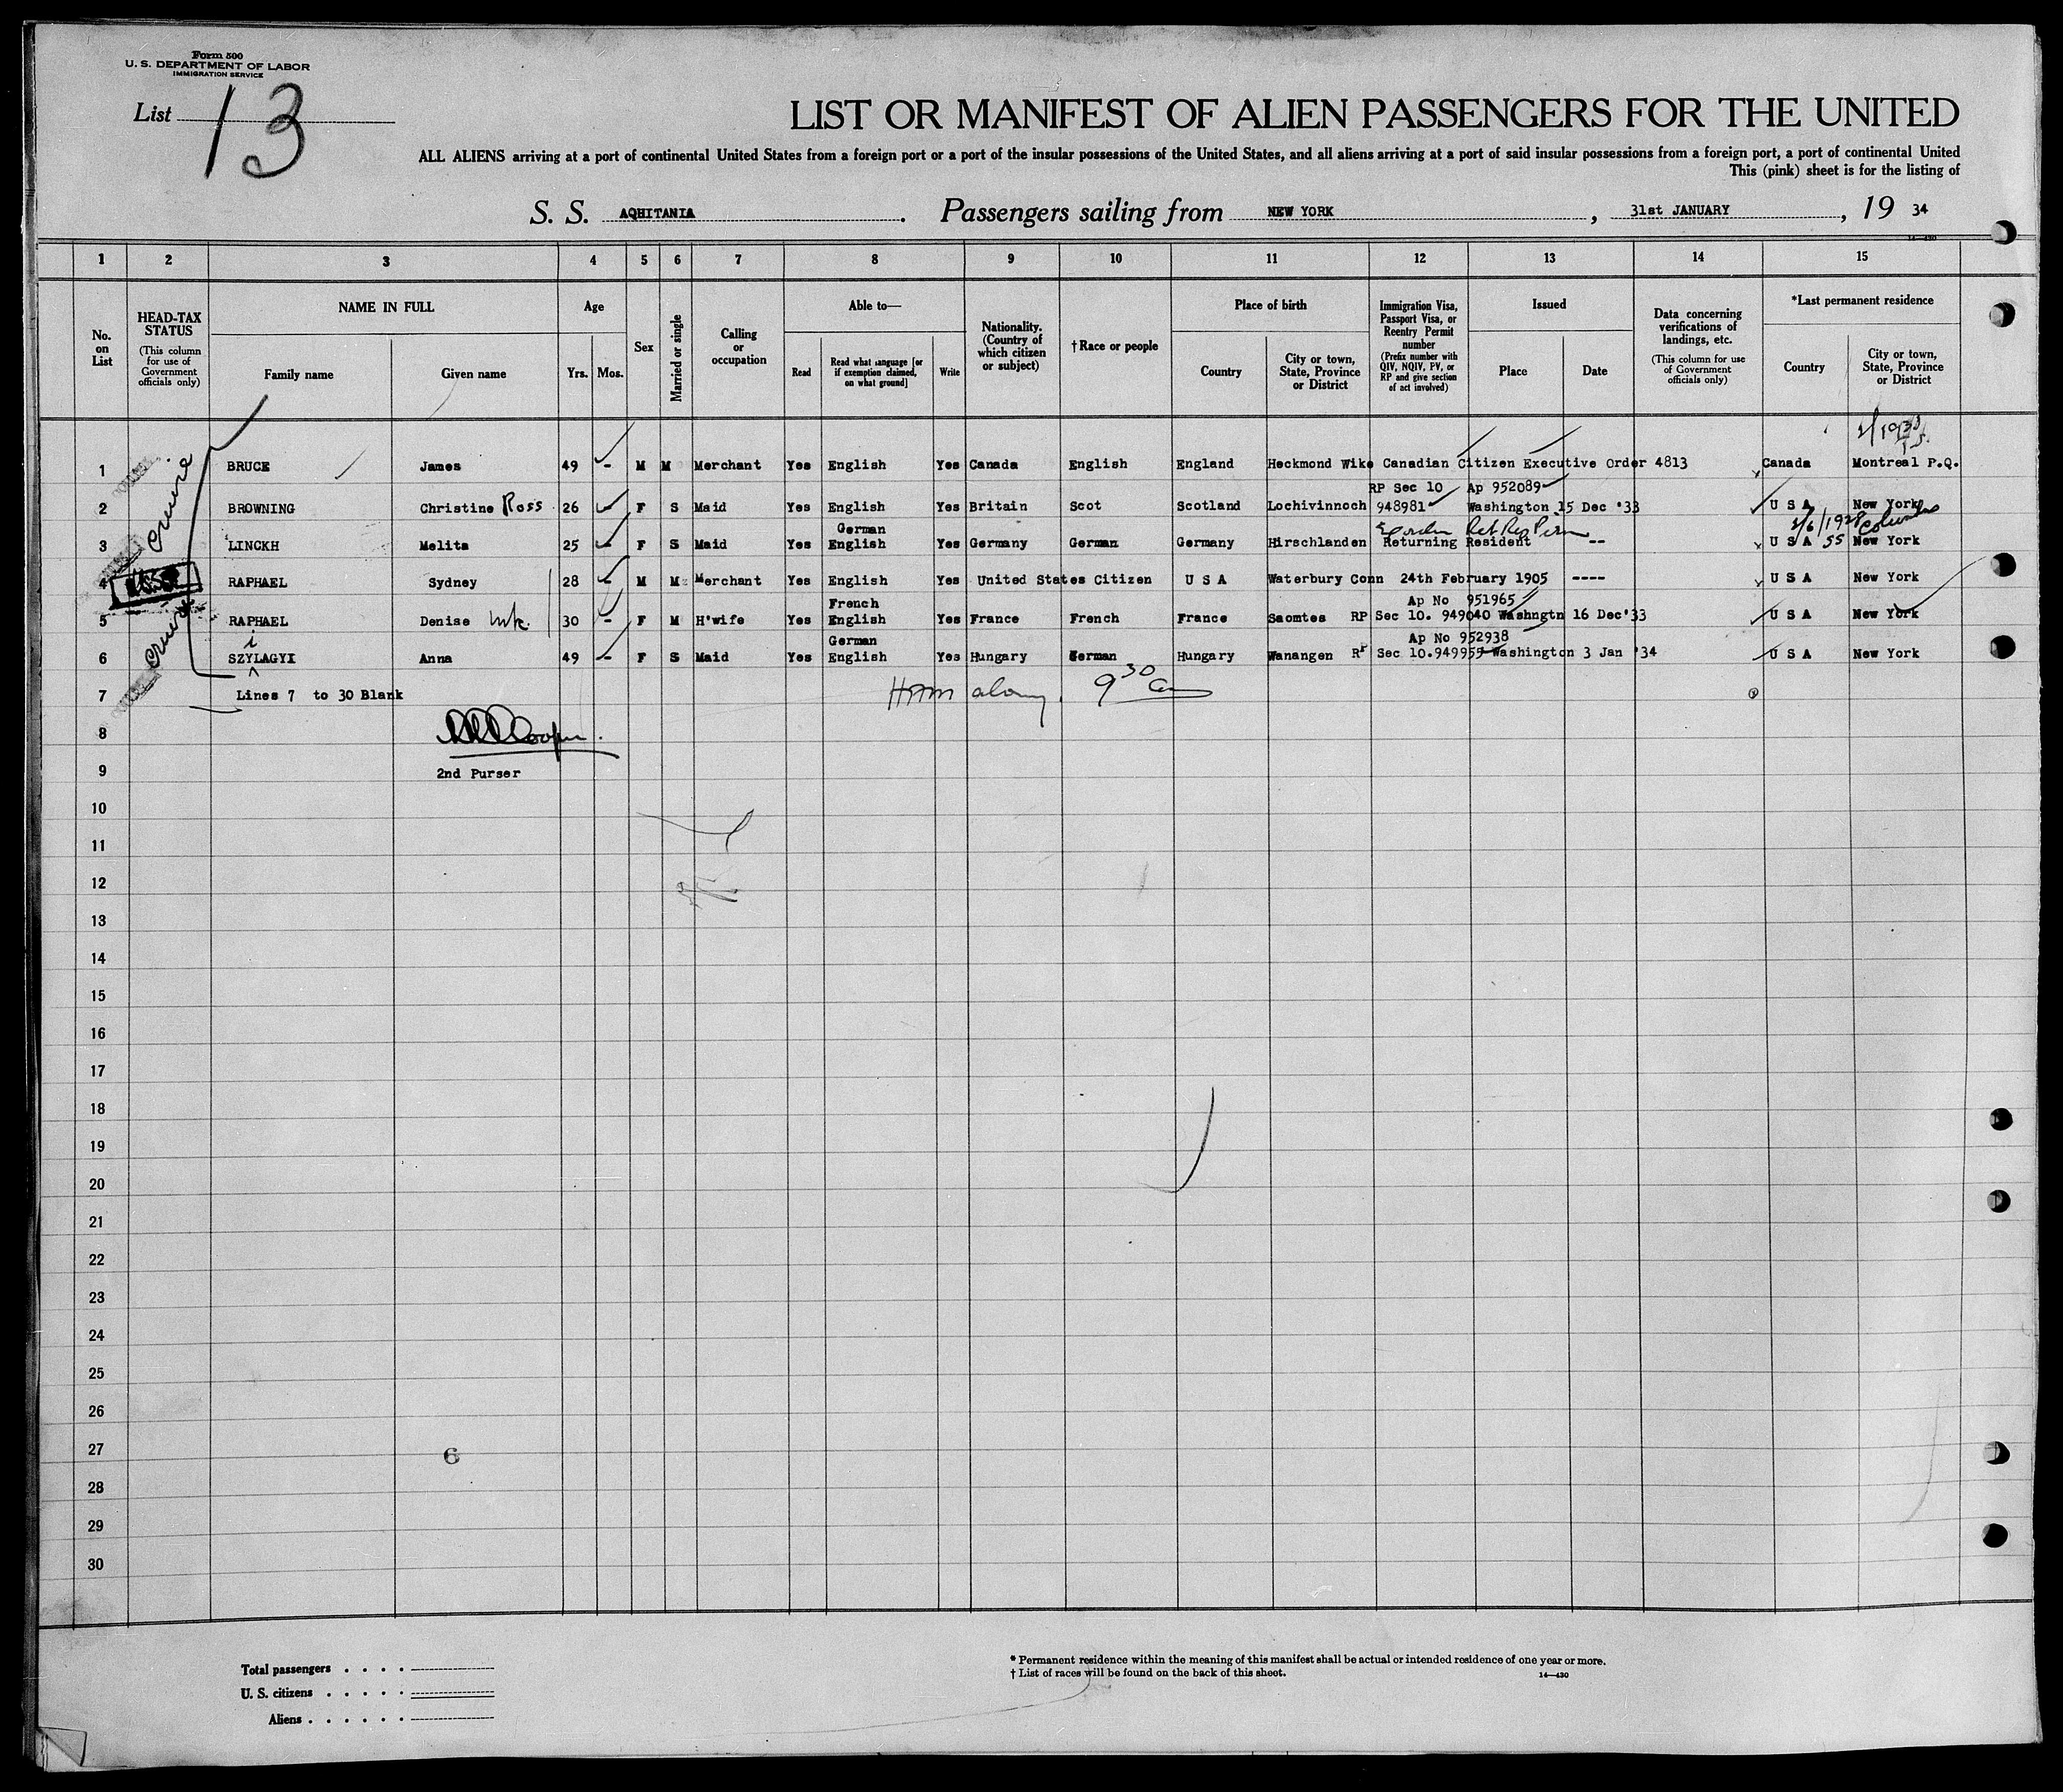 Form 500
U. S. DEPARTMENT OF LABOR
IMMIGRATION SERVICE
List 13
LIST OR MANIFEST OF ALIEN PASSENGERS FOR THE UNITED
ALL ALIENS arriving at a port of continental United States from a foreign port or a port of the insular possessions of the United States, and all aliens arriving at a port of said insular possessions from a foreign port, a port of continental United
This (pink) sheet is for the listing of
S. S. AQHITANIA. Passengers sailing from NEW YORK, 31st JANUARY, 19 34
1 2 3 4 5 6 7 8 9 10 11 12 13 14 15
No. on List
HEAD-TAX STATUS (This column for use of Government officials only)
NAME IN FULL
Family name Given name
Age
Yrs. Mos.
Sex
Married or single
Calling or occupation
Able to—
Read Read what language [or if exemption claimed, on what ground] Write
Nationality. (Country of which citizen or subject)
†Race or people
Place of birth
Country City or town, State, Province or District
Immigration Visa, Passport Visa, or Reentry Permit number (Prefix number with QIV, NQIV, PV, or RP and give section of act involved)
Issued
Place Date
Data concerning verifications of landings, etc. (This column for use of Government officials only)
*Last permanent residence
Country City or town, State, Province or District
1 BRUCE James 49 - M M Merchant Yes English Yes Canada English England Heckmond Wike Canadian Citizen Executive Order 4813 Canada Montreal P.Q.
RP Sec 10 Ap 952089
2 BROWNING Christine Ross 26 - F S Maid Yes English Yes Britain Scot Scotland Lochivinnoch 948981 Washington 15 Dec '33 U S A New York
German
3 LINCKH Melita 25 - F S Maid Yes English Yes Germany German Germany Hirschlanden Returning Resident -- U S A SS New York
2/6/1928 Columbus
4 RAPHAEL Sydney 28 - M M Merchant Yes English Yes United States Citizen U S A Waterbury Conn 24th February 1905 ---- U S A New York
French Ap No 951965
5 RAPHAEL Denise 30 - F M H'wife Yes English Yes France French France Saomtes RP Sec 10. 949040 Washngtn 16 Dec'33 U S A New York
i German Ap No 952938
6 SZYLAGYI Anna 49 - F S Maid Yes English Yes Hungary German Hungary Wanangen RP Sec 10.949959 Washington 3 Jan '34 U S A New York
Cruise
Cruise
7 Lines 7 to 30 Blank 9 30
8
9 2nd Purser
10
11
12
13
14
15
16
17
18
19
20
21
22
23
24
25
26
27 6
28
29
30
Total passengers
U. S. citizens
Aliens
* Permanent residence within the meaning of this manifest shall be actual or intended residence of one year or more.
† List of races will be found on the back of this sheet. 14—430